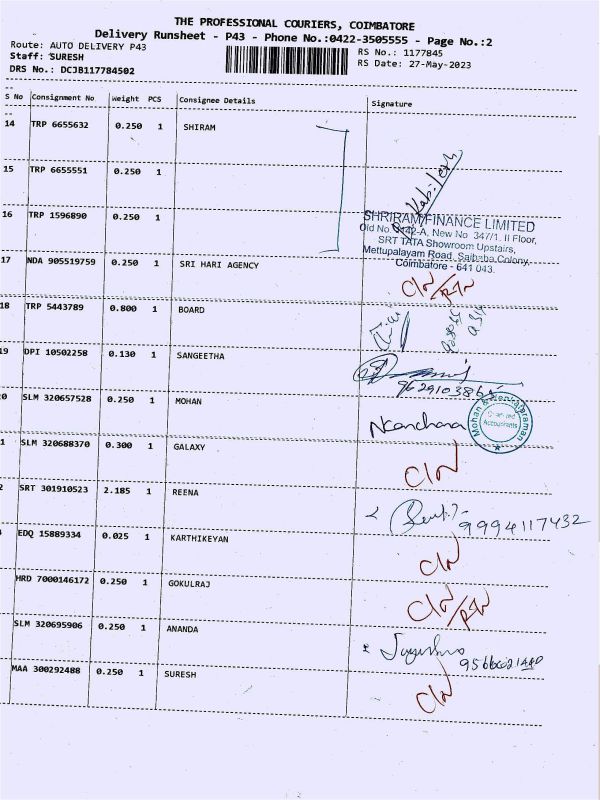 THE PROFESSIONAL COURIERS, COIMBATORE
Delivery Runsheet - P43 - Phone No.:0422-3505555 - Page No.:2
Route: AUTO DELIVERY P43
RS No.: 1177845
Staff: SURESH
RS Date: 27-May-2023
DRS No.: DCJB117784502
S No Consignment No Weight PCS Consignee Details Signature
14 TRP 6655632 0.250 1 SHIRAM
15 TRP 6655551 0.250 1
16 TRP 1596890 0.250 1
SHRIRAM FINANCE LIMITED
Old No. 342-A, New No. 347/1, II Floor,
SRT TATA Showroom Upstairs,
Mettupalayam Road, Saibaba Colony,
Coimbatore - 641 043.
17 NDA 905519759 0.250 1 SRI HARI AGENCY
18 TRP 5443789 0.800 1 BOARD
19 DPI 10502258 0.130 1 SANGEETHA
0 SLM 320657528 0.250 1 MOHAN
Mohan & Venkataraman
Chartered
Accountants
1 SLM 320688370 0.300 1 GALAXY
2 SRT 301910523 2.185 1 REENA 9994117432
EDQ 15889334 0.025 1 KARTHIKEYAN
HRD 7000146172 0.250 1 GOKULRAJ
SLM 320695906 0.250 1 ANANDA
MAA 300292488 0.250 1 SURESH